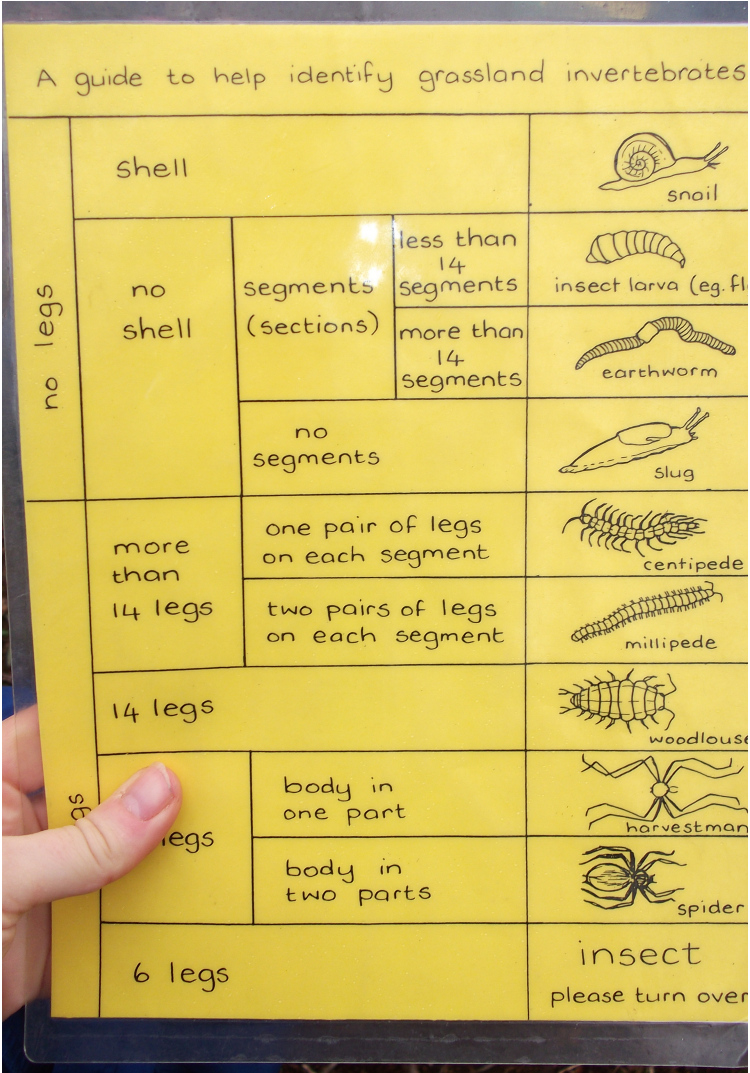 A guide to help identify grassland invertebrates
no legs
shell
snail
no
shell
segments
(sections)
less than
14
segments
insect larva (eg.
more than
14
segments
earthworm
no
segments
slug
more
than
14 legs
one pair of legs
on each segment
centipede
two pairs of legs
on each segment
millipede
14 legs
woodlouse
legs
body in
one part
harvestman
body in
two parts
spider
6 legs
insect
please turn over